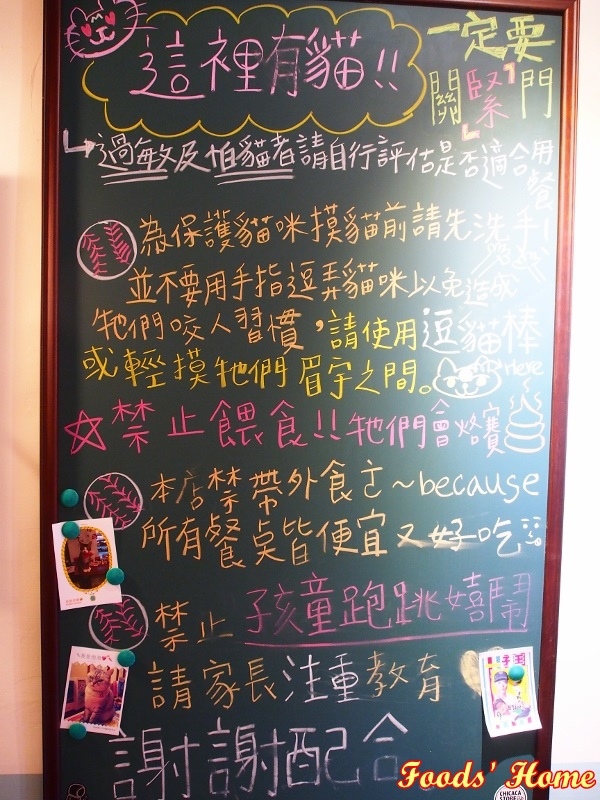 這裡有貓!!
一定要
關緊門
過敏及怕貓者請自行評估是否適合用餐
為保護貓咪摸貓前請先洗手!
並不要用手指逗弄貓咪以免造成
牠們咬人習慣,請使用逗貓棒
或輕摸牠們眉宇之間。
Here
禁止餵食!!牠們會烙賽
本店禁帶外食~because
所有餐點皆便宜又好吃
禁止孩童跑跳嬉鬧
請家長注重教育
謝謝配合
Foods' Home
CHICACA
STORE